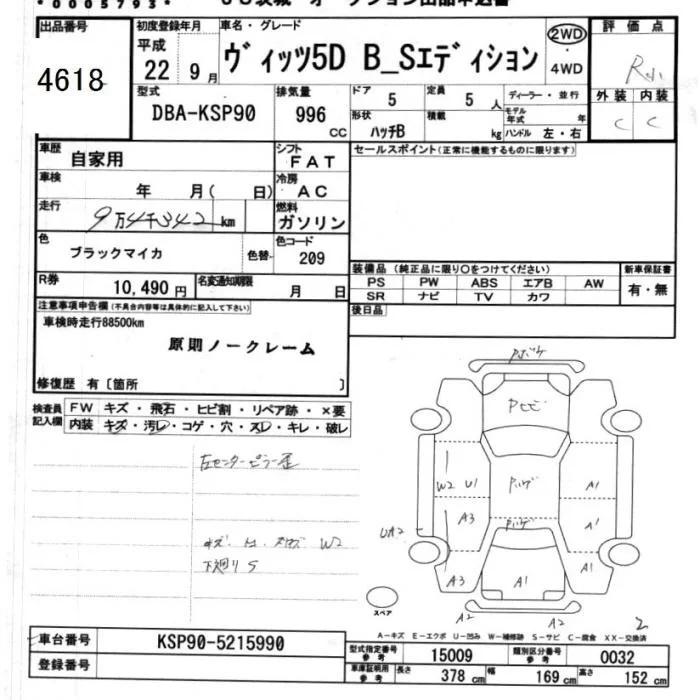 *0005793*
出品番号
4618
初度登録年月
平成
22年 9月
車名・グレード
ヴィッツ5D B_Sエディション
2WD
4WD
評価点
R
外装 内装
C C
型式
DBA-KSP90
排気量
996 cc
ドア 5
形状 ハッチB
定員 5 人
積載 kg
ディーラー・並行
モデル年式 年
ハンドル 左・右
車歴 自家用
シフト FAT
車検 年 月( 日)
冷房 AC
走行 9万4千342 km
燃料 ガソリン
色 ブラックマイカ 色替
色コード 209
R券 10,490円
名変通知期限 月 日
セールスポイント(正常に機能するものに限ります)
装備品(純正品に限り○をつけてください)
PS PW ABS エアB AW
SR ナビ TV カワ
新車保証書
有・無
後日品
注意事項申告欄(不具合内容等は具体的に記入して下さい)
車検時走行88500km
原則ノークレーム
修復歴 有〔箇所 〕
検査員記入欄
FW キズ・飛石・ヒビ割・リペア跡・×要
内装 キズ・汚レ・コゲ・穴・スレ・キレ・破レ
左センターピラー歪
W2
下廻りS
Pハゲ
Pヒビ
Pハゲ
Pハゲ
W2 U1
A1
A3
A1
UA2
A3
A1
A1
A2
A2
スペア
2
A-キズ E-エクボ U-凹み W-補修跡 S-サビ C-腐食 XX-交換済
車台番号 KSP90-5215990
登録番号
型式指定番号 参考 15009
類別区分番号 参考 0032
車庫証明用 参考 長さ 378 cm 幅 169 cm 高さ 152 cm